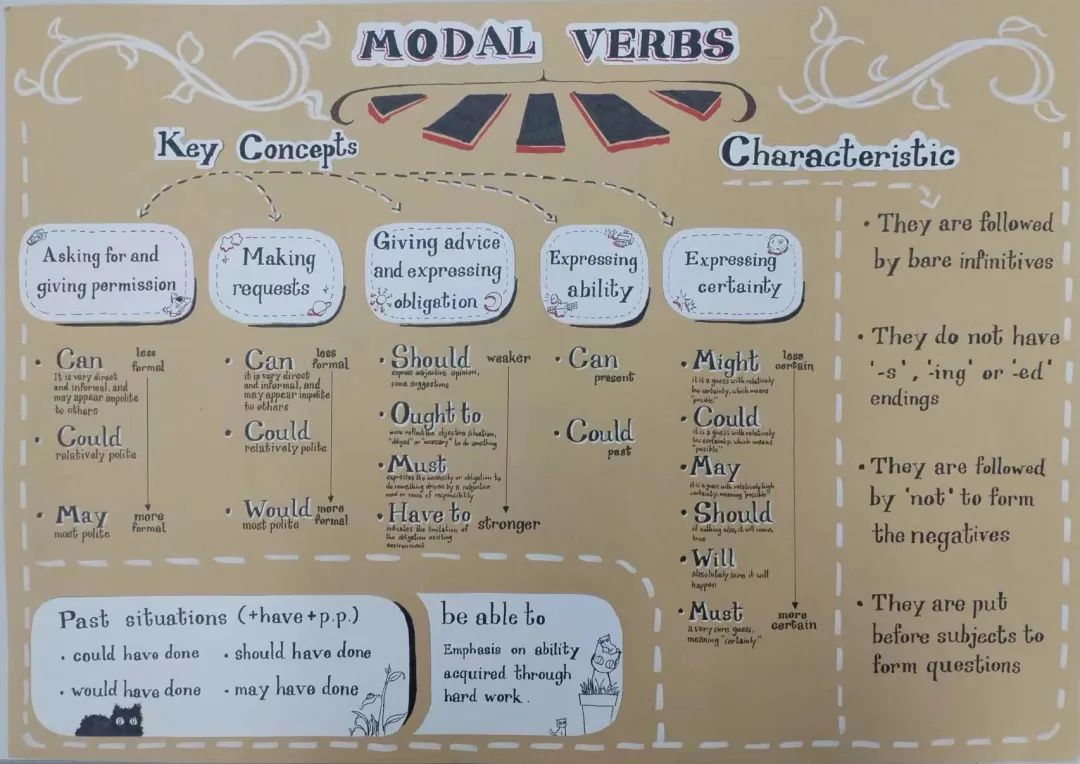 MODAL VERBS
Key Concepts
Asking for and
giving permission
• Can
less
formal
It is very direct
and informal, and
may appear impolite
to others
• Could
relatively polite
• May
most polite
more
formal
Making
requests
• Can
less
formal
it is very direct
and informal, and
may appear impolite
to others
• Could
relatively polite
• Would
most polite
more
formal
Giving advice
and expressing
obligation
• Should
weaker
express subjective opinion,
some suggestions
• Ought to
more reflect the objective situation,
"obliged" or "necessary" to do something
• Must
expresses the necessity or obligation to
do something driven by a subjective
need or sense of responsibility
• Have to
stronger
indicates the limitation of
the obligation existing
environment
Expressing
ability
• Can
present
• Could
past
Expressing
certainty
• Might
less
certain
it is a guess with relatively
low certainty, which means
"possible"
• Could
it is a guess with relatively
low certainty, which means
"possible"
• May
it is a guess with relatively high
certainty, meaning "possible"
• Should
if nothing else, it will come
true
• Will
absolutely sure it will
happen
• Must
a very sure guess,
meaning "certainty"
more
certain
Characteristic
• They are followed
by bare infinitives
• They do not have
'-s', '-ing' or '-ed'
endings
• They are followed
by 'not' to form
the negatives
• They are put
before subjects to
form questions
Past situations (+have+p.p.)
• could have done
• should have done
• would have done
• may have done
be able to
Emphasis on ability
acquired through
hard work.